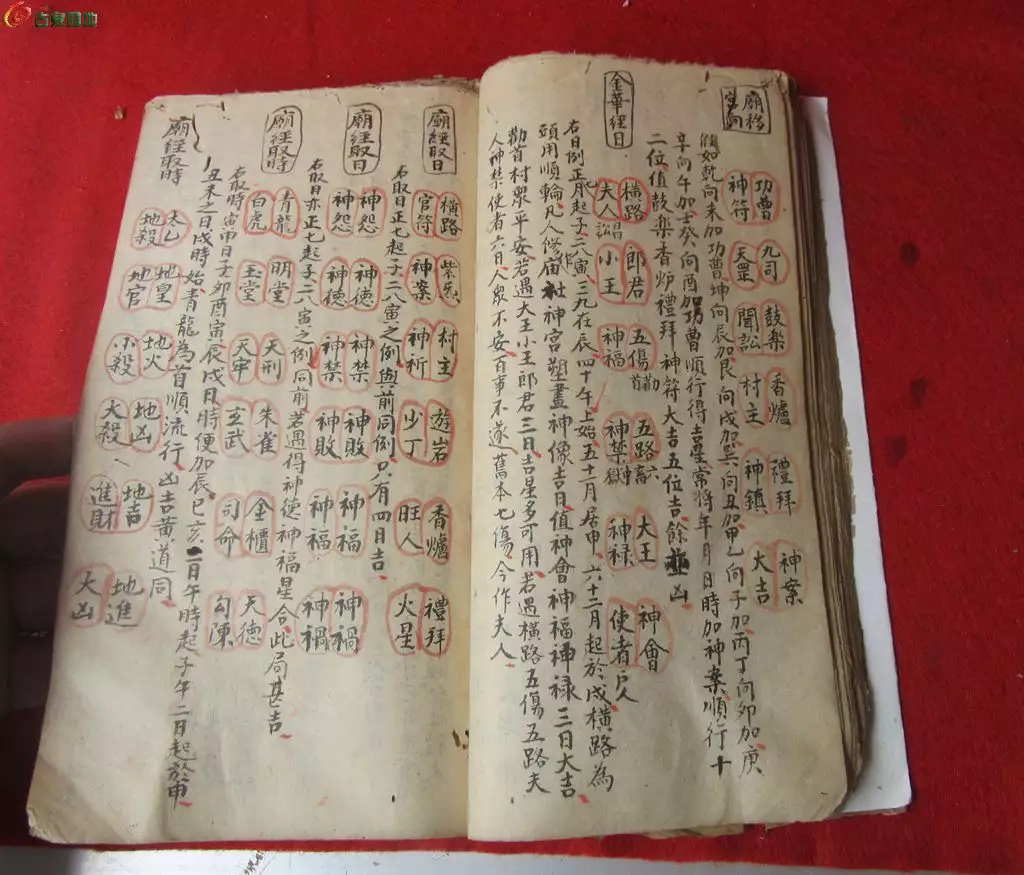 占泉园地
廟移
宮向
功曹 九司 鼓樂 香爐 禮拜 神案
神符 天罡 聞訟 村主 神鎮 大吉
假如乾向未加功曹坤向辰加艮向戌加巽向丑加甲乙向子加丙丁向卯加庚
辛向午加壬癸向酉加功曹順行得吉星常將年月日時加神案順行十
二位值鼓樂香炉禮拜神符大吉五位吉餘並凶
金華經日
橫路 郎君 五傷 五路 大王 神會
夫人 小王 神福 神禁 神禄 使者
右日例正七月起子二八寅三九在辰四十午上始五十一月居申六十二月起於戌橫路為
頭用順輪凡人修作庙社神宮塑畫神像吉日值神會神福神禄三日大吉
勸首村眾平安若遇大王小王郎君三日吉星多可用若遇橫路五傷五路夫
人神禁使者六日人眾不安百事不遂舊本七傷今作夫人
廟經取日
橫路 紫炁 村主 遊岩 香爐 禮拜
官符 神案 神祈 少丁 旺人 火星
右取日正七起子二八寅之例與前同例只有四日吉
廟經取日
神怨 神德 神禁 神敗 神福 神禍
神怨 神德 神禁 神敗 神福 神禍
右取日亦正七起子二八寅之例同前若遇得神德神福星合此局甚吉
廟經取時
青龍 明堂 天刑 朱雀 金櫃 天德
白虎 玉堂 天牢 玄武 司命 勾陳
右取時寅申日子卯酉寅辰戌日時便加辰巳亥二日午時起子午二日起於申
丑未之日戌時始青龍為首順流行凶吉黃道同
廟經取時
太乙 地皇 地火 地凶 地吉 地進
地殺 地官 小殺 大殺 進財 大凶